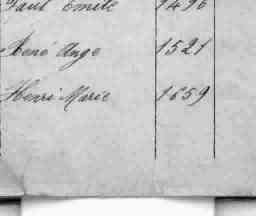 Paul Emile 1496
René Ange 1521
Henri Marie 1659